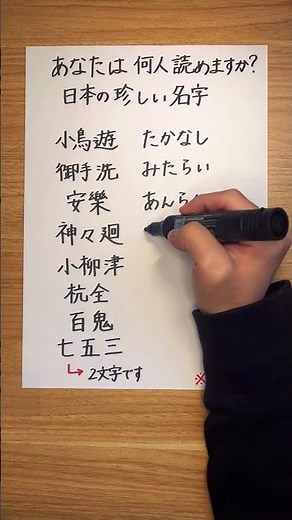 あなたは何人読めますか?
日本の珍しい名字
小鳥遊 たかなし
御手洗 みたらい
安樂 あんら
神々廻
小柳津
杭全
百鬼
七五三
↳2文字です
※